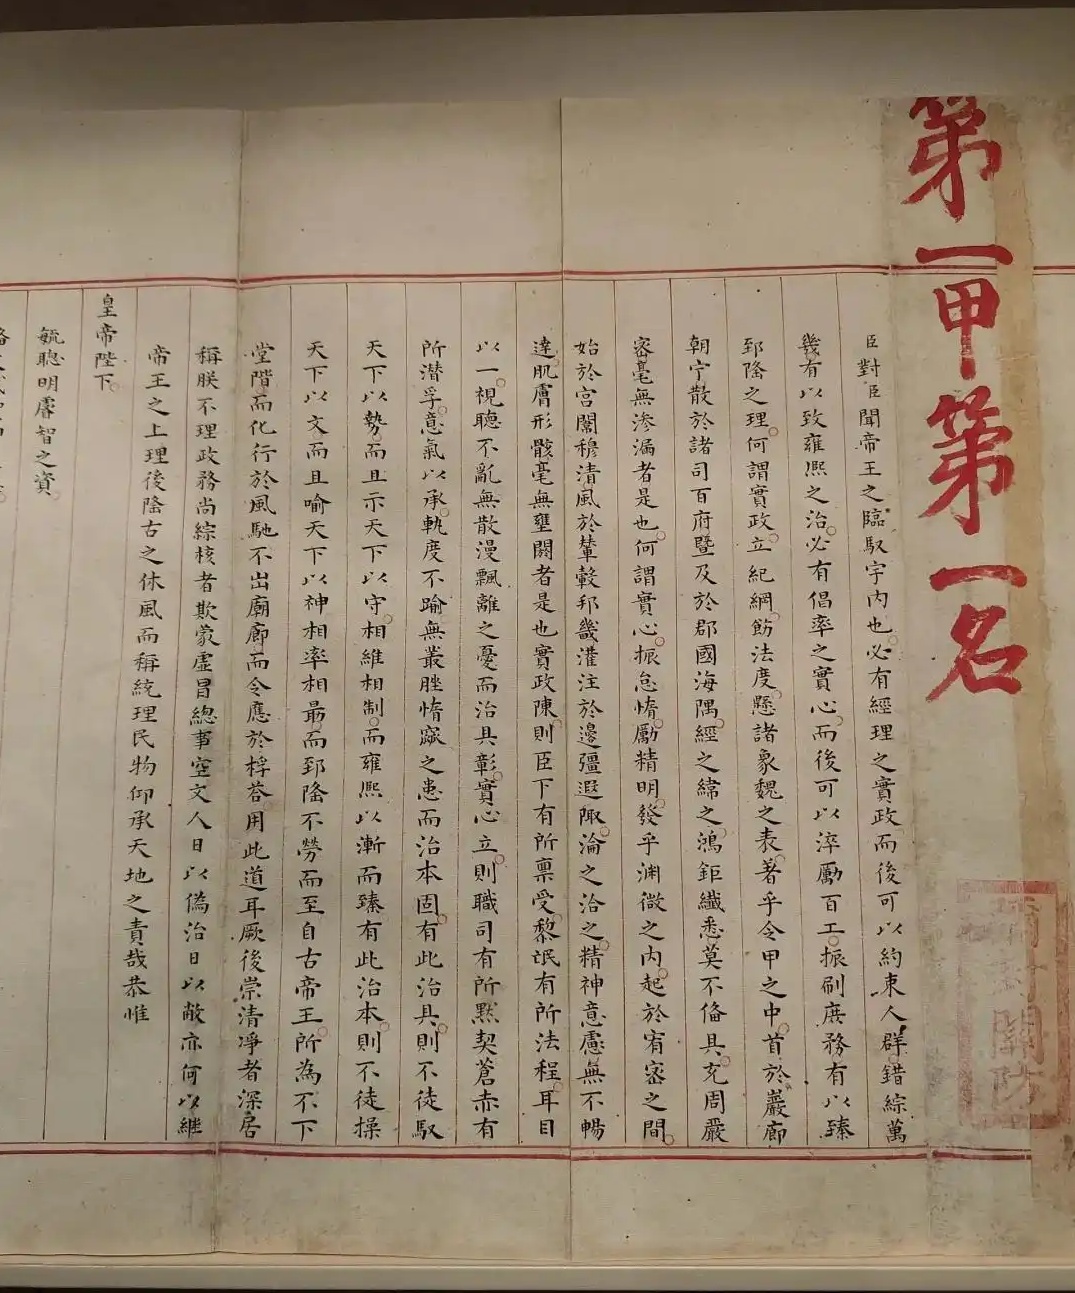 第一甲第一名
臣對臣聞帝王之臨馭宇内也必有經理之實政而後可以約束人群錯綜萬
幾有以致雍熙之治必有倡率之實心而後可以淬勵百工振刷庶務有以臻
郅隆之理何謂實政立紀綱飭法度懸諸象魏之表著乎令甲之中首於巖廊
朝宁散於諸司百府暨及於郡國海隅經之緯之鴻鉅纖悉莫不俻具充周嚴
密毫無滲漏者是也何謂實心振怠惰勵精明發乎渊微之内起於宥密之間
始於宮闈穆清風於輦轂邦畿灌注於邊疆遐陬淪之洽之精神意慮無不暢
達肌膚形骸毫無壅閼者是也實政陳則臣下有所禀受黎氓有所法程耳目
以一視聽不亂無散漫飄離之憂而治具彰實心立則職司有所黙契蒼赤有
所潜孚意氣以承軌度不踰無叢脞惰窳之患而治本固有此治具則不徒馭
天下以勢而且示天下以守相維相制而雍熙以漸而臻有此治本則不徒操
天下以文而且喻天下以神相率相最而郅隆不勞而至自古帝王所為不下
堂階而化行於風馳不出廟廊而令應於桴荅用此道耳厥後崇清凈者深居
稱朕不理政務尚綜核者欺蒙虚冒總事空文人日以偽治日以敝亦何以繼
帝王之上理後隆古之休風而稱統理民物仰承天地之責哉恭惟
皇帝陛下
毓聰明睿智之資